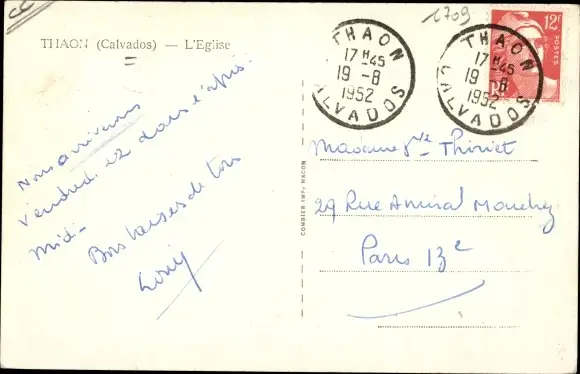 1709
THAON (Calvados) — L'Eglise
THAON
17H45
19-8
1952
CALVADOS
THAON
17H45
19-8
1952
CALVADOS
12F
POSTES
Nous arriverons
vendredi 22 dans l'après-
midi-
Bons baisers de tous
COMBIER IMP. MACON
Madame Thiriet
29 Rue Amiral Mouchez
Paris 13e